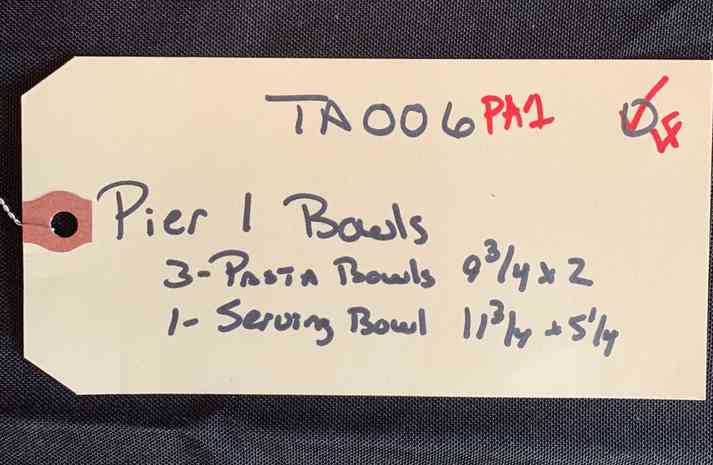 TA006 PA1 D LF
Pier 1 Bowls
3- Pasta Bowls 9 3/4 x 2
1- Serving Bowl 11 3/4 x 5 1/4